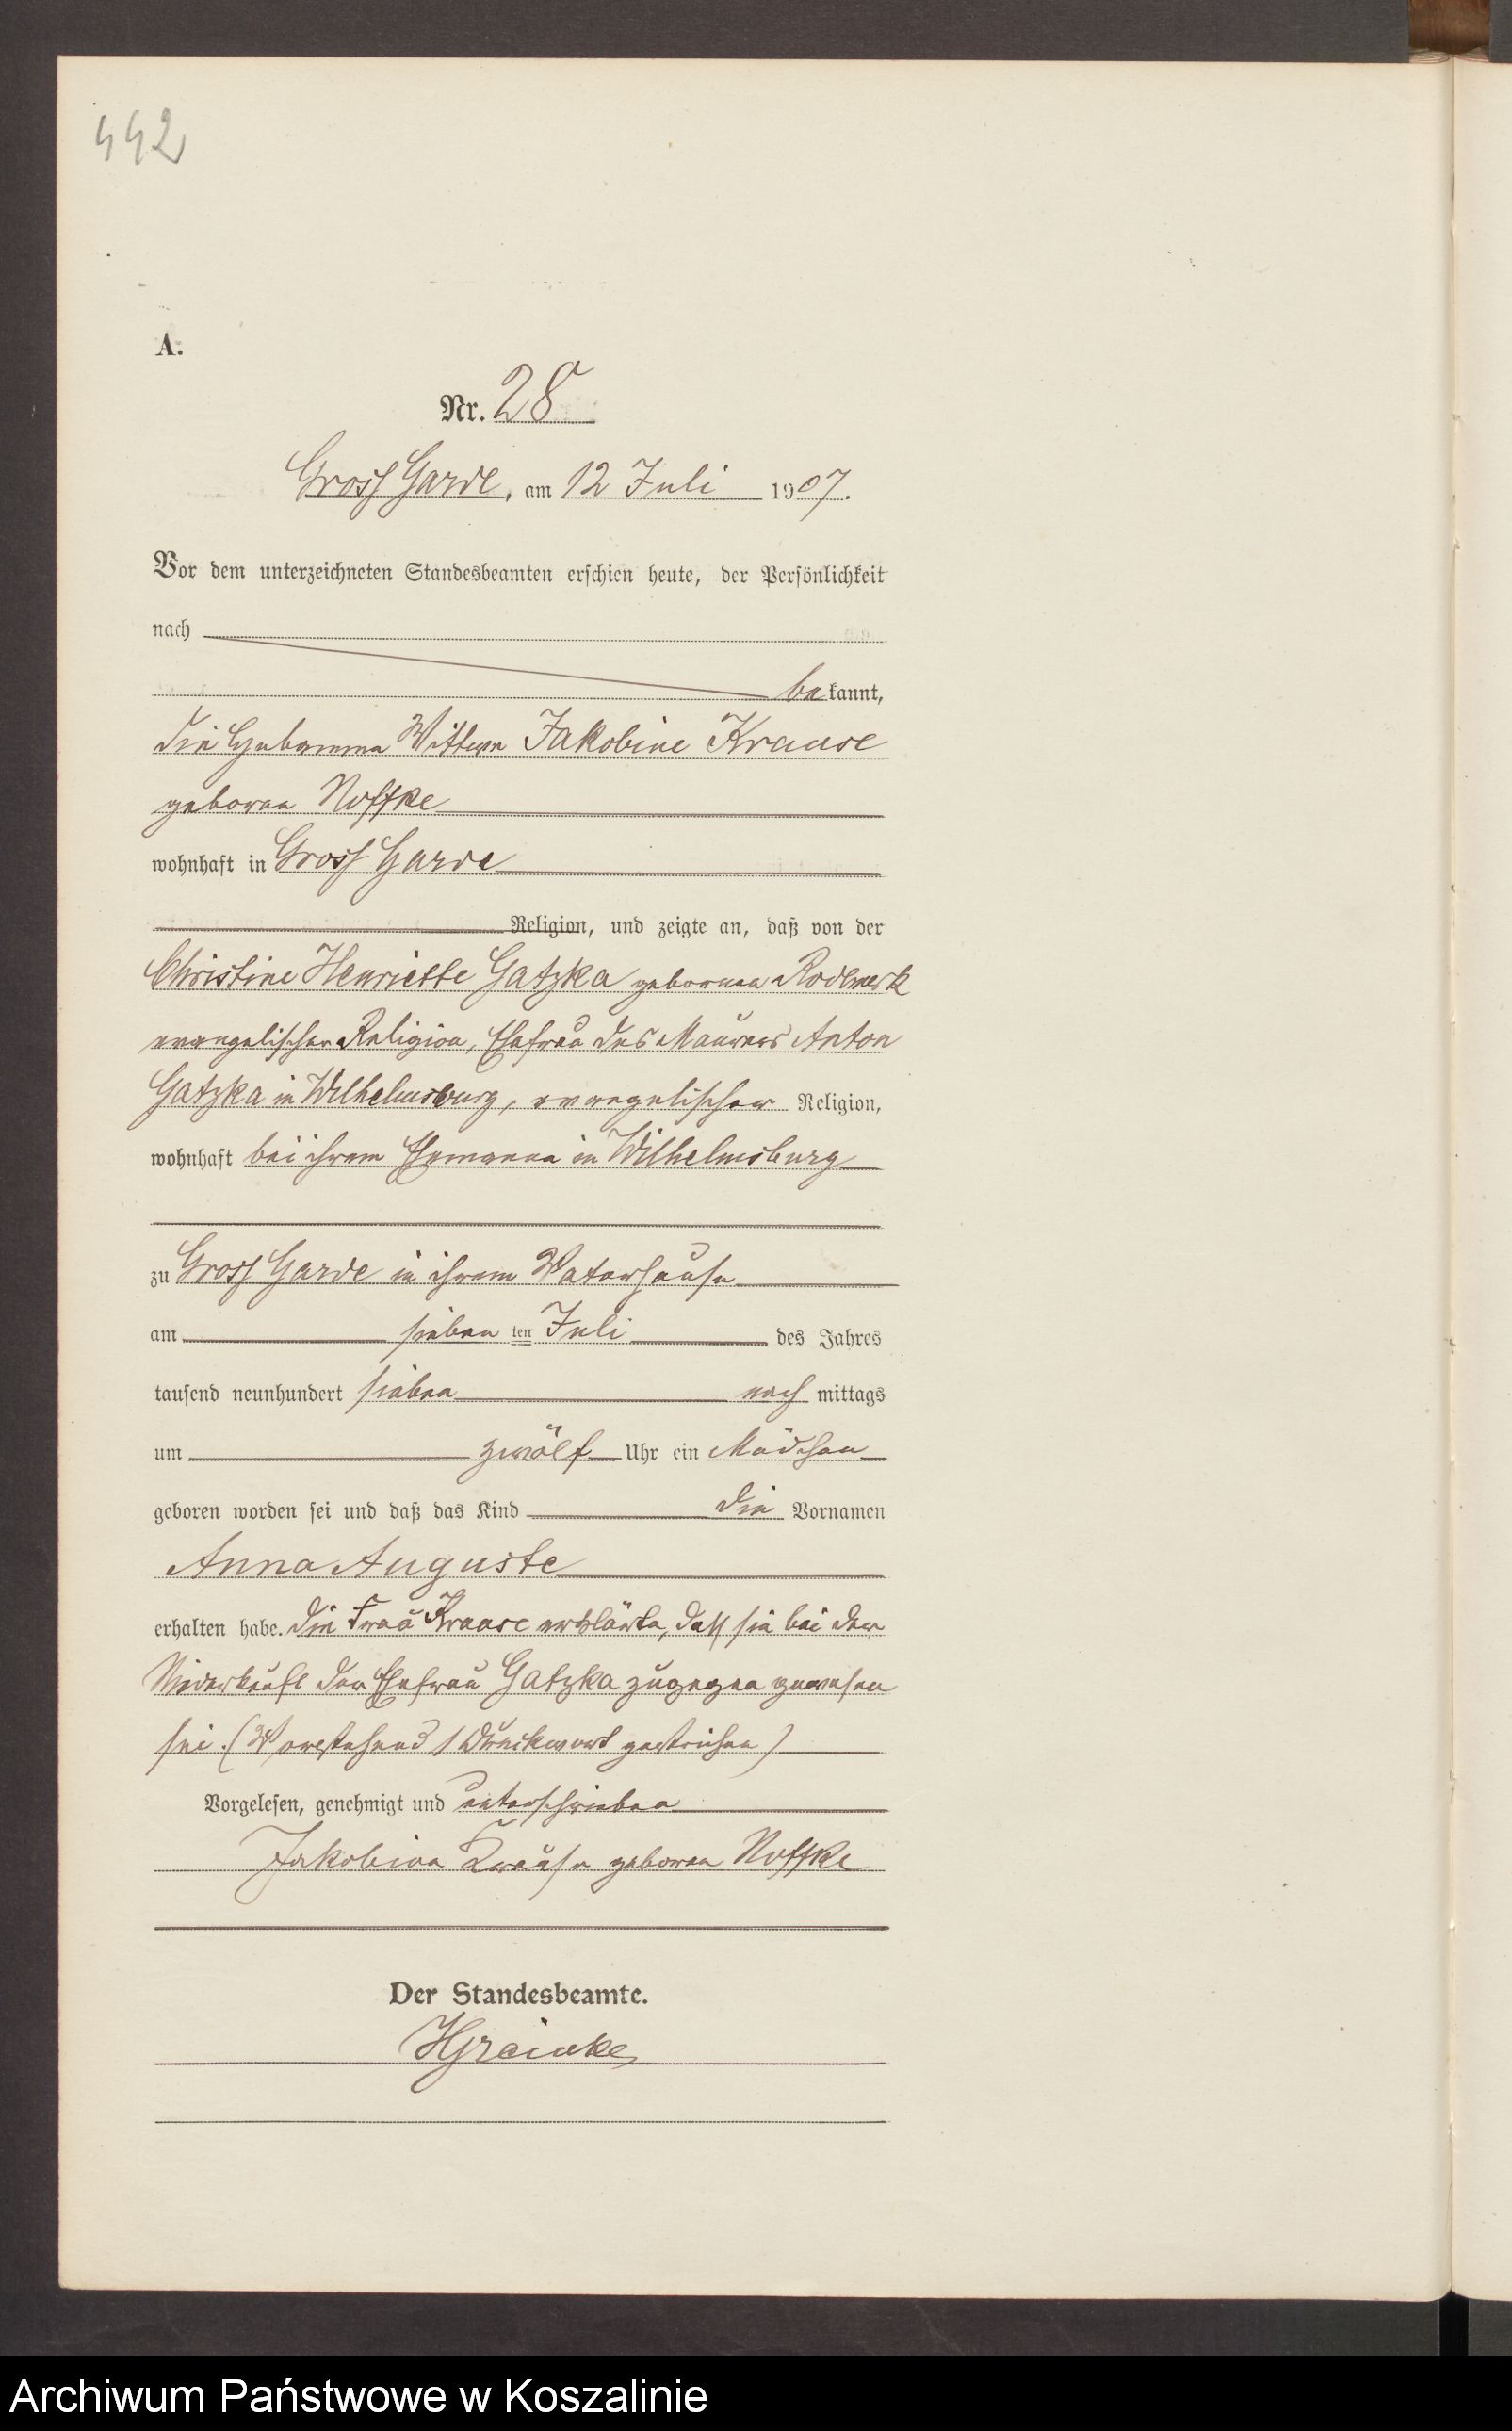 442
A.
Nr. 28
Gross Garde, am 12 Juli 1907.
Vor dem unterzeichneten Standesbeamten erschien heute, der Persönlichkeit
nach
bekannt,
die Hebamme Wittwe Jakobine Krause
geborne Noffke
wohnhaft in Gross Garde
Religion, und zeigte an, daß von der
Christine Henriette Gatzka gebornen Rodemerk
evangelischer Religion, Ehefrau des Maurers Anton
Gatzka in Wilhelmsburg, evangelischer Religion,
wohnhaft bei ihrem Ehemanne in Wilhelmsburg
zu Gross Garde in ihrem Vaterhause
am sieben ten Juli des Jahres
tausend neunhundert sieben nach mittags
um zwölf Uhr ein Mädchen
geboren worden sei und daß das Kind die Vornamen
Anna Auguste
erhalten habe. Die Frau Krause erklärte, daß sie bei der
Niederkunft der Ehefrau Gatzka zugegen gewesen
sei. (Vorstehend 1 Druckwort gestrichen)
Vorgelesen, genehmigt und unterschrieben
Jakobine Krause geborne Noffke
Der Standesbeamte.
Archiwum Państwowe w Koszalinie